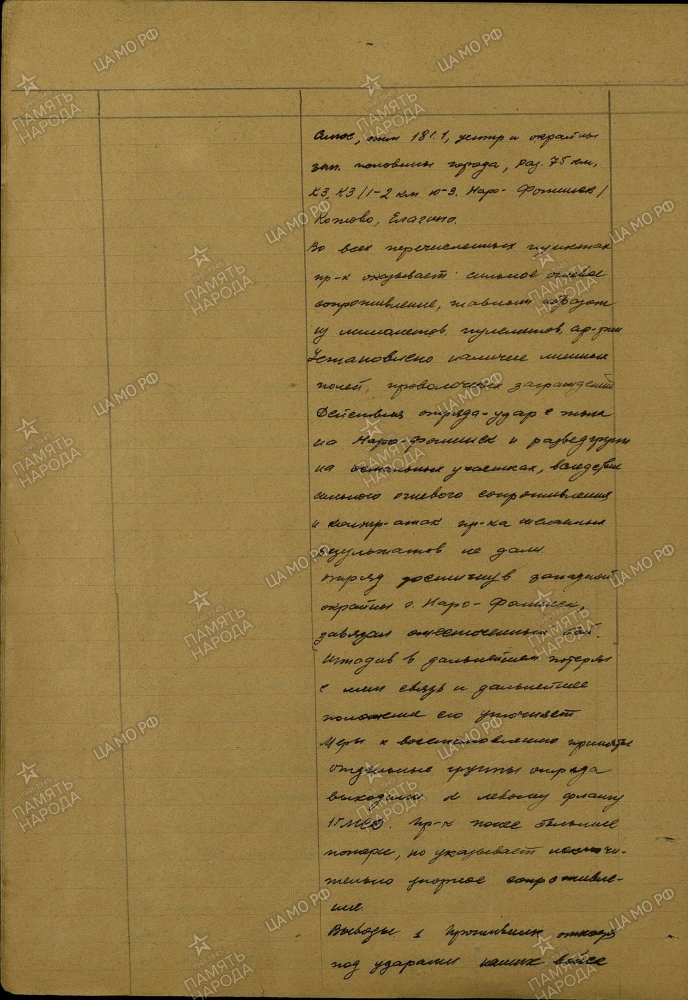 отм 181.1, центр и окраины
зап. половины города, раз. 75 км,
КЗ, КЗ /1-2 км ю-з. Наро-Фоминск/
Котово, Елагино.
Во всех перечисленных пунктах
пр-к оказывает сильное огневое
сопротивление, главным образом
из минометов пулеметов,
Установлено наличие минных
полей, проволочных заграждений
Действия отряда-удар с тыла
на Наро-Фоминск и разведгрупп
на остальных участках, вследствии
сильного огневого сопротивления
и контр-атак пр-ка желанных
результатов не дали
отряд достигнув западной
окраины г. Наро-Фоминск,
завязал ожесточенный бой.
в дальнейшем потеряли
с ним связь и дальнейшее
положение его уточняет
Меры к восстановлению приняты
Отдельные группы отряда
выходили к левому флангу
1ГМСД. Пр-к понес большие
потери, но указывает исключи-
тельно упорное сопротивле-
ние.
Выводы: 1 Противник отходя
под ударами наших войск
ПАМЯТЬ НАРОДА
ЦА МО РФ